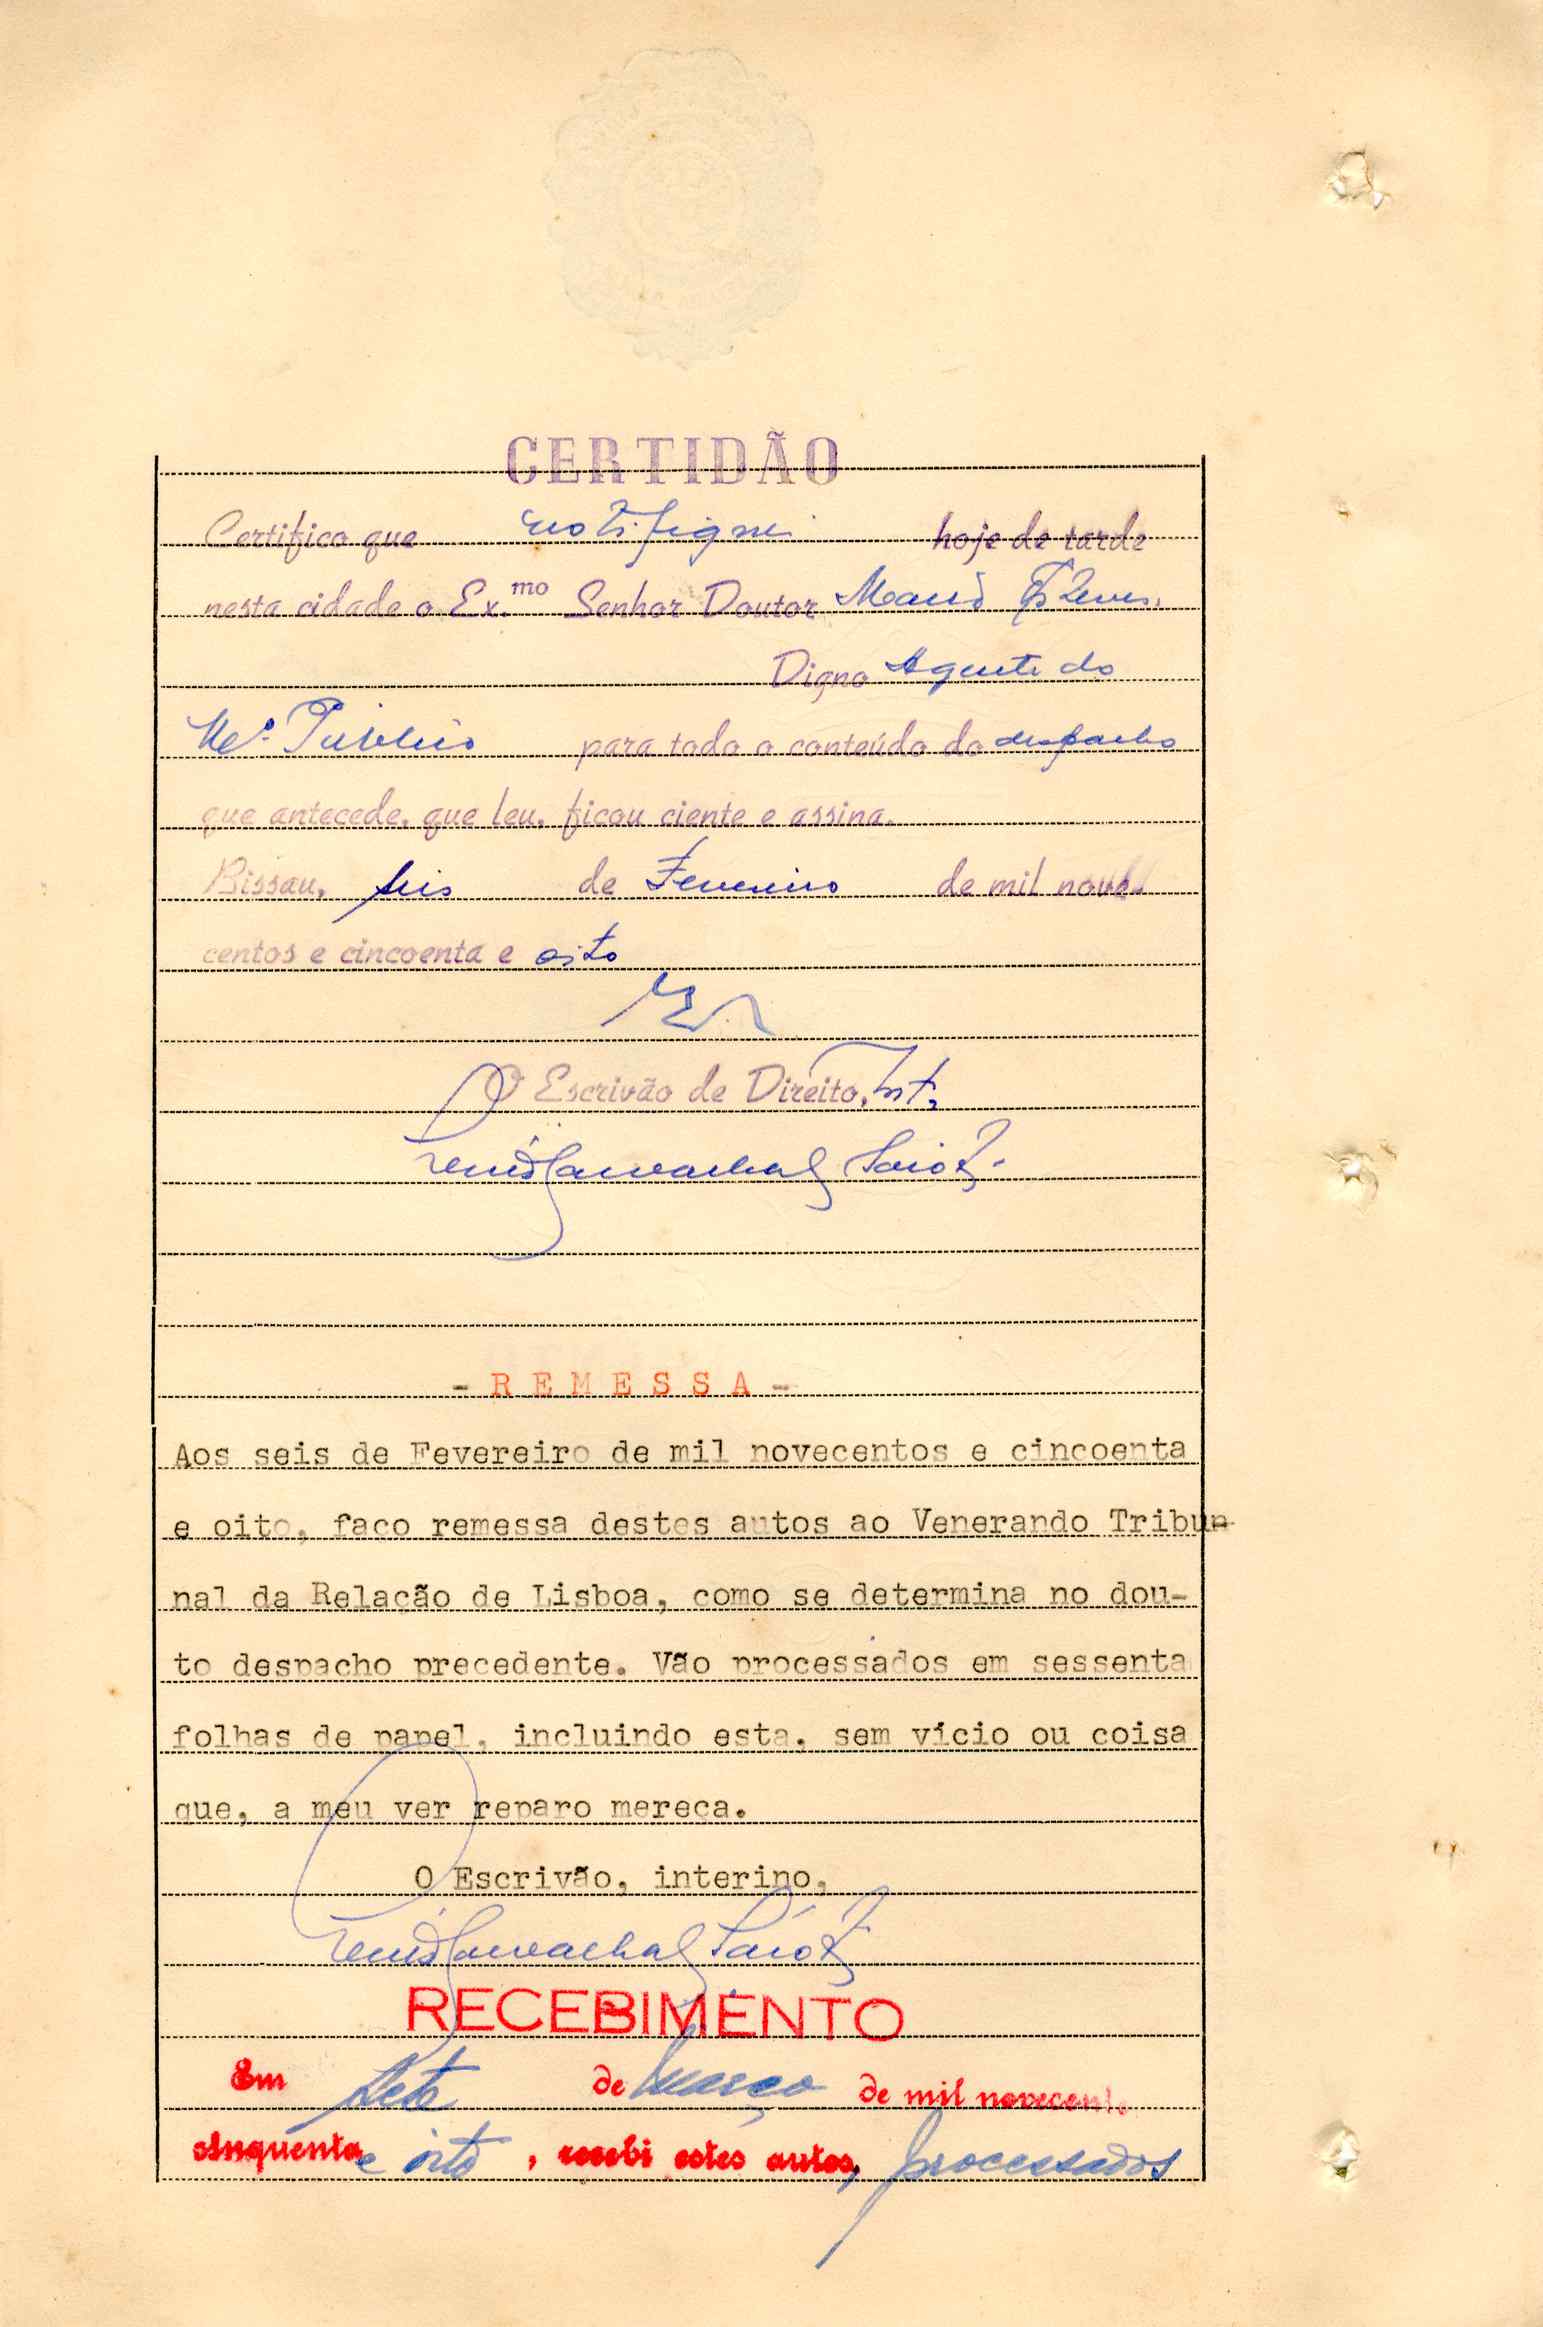 CERTIDÃO
Certifico que notifiquei hoje de tarde
nesta cidade o Ex.mo Senhor Doutor
Digno Agente do
Mº. Público para todo o conteúdo do despacho
que antecede, que leu, ficou ciente e assina.
Bissau, seis de Fevereiro de mil nove-
centos e cincoenta e oito
O Escrivão de Direito, Intº.
- R E M E S S A -
Aos seis de Fevereiro de mil novecentos e cincoenta
e oito, faço remessa destes autos ao Venerando Tribun
nal da Relação de Lisboa, como se determina no dou-
to despacho precedente. Vão processados em sessenta
folhas de papel, incluindo esta, sem vício ou coisa
que, a meu ver reparo mereça.
O Escrivão, interino,
RECEBIMENTO
Em sete de Março de mil novecent
cinquenta e oito, recebi estes autos, processados